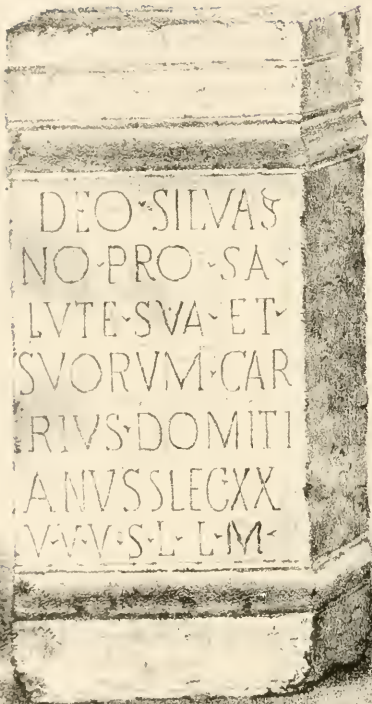 DEO·SILVA
NO·PRO·SA·
LVTE·SVA·ET·
SVORVM·CAR
RIVS·DOMITI
ANVSSLEGXX
V·V·V·S·L·L·M·